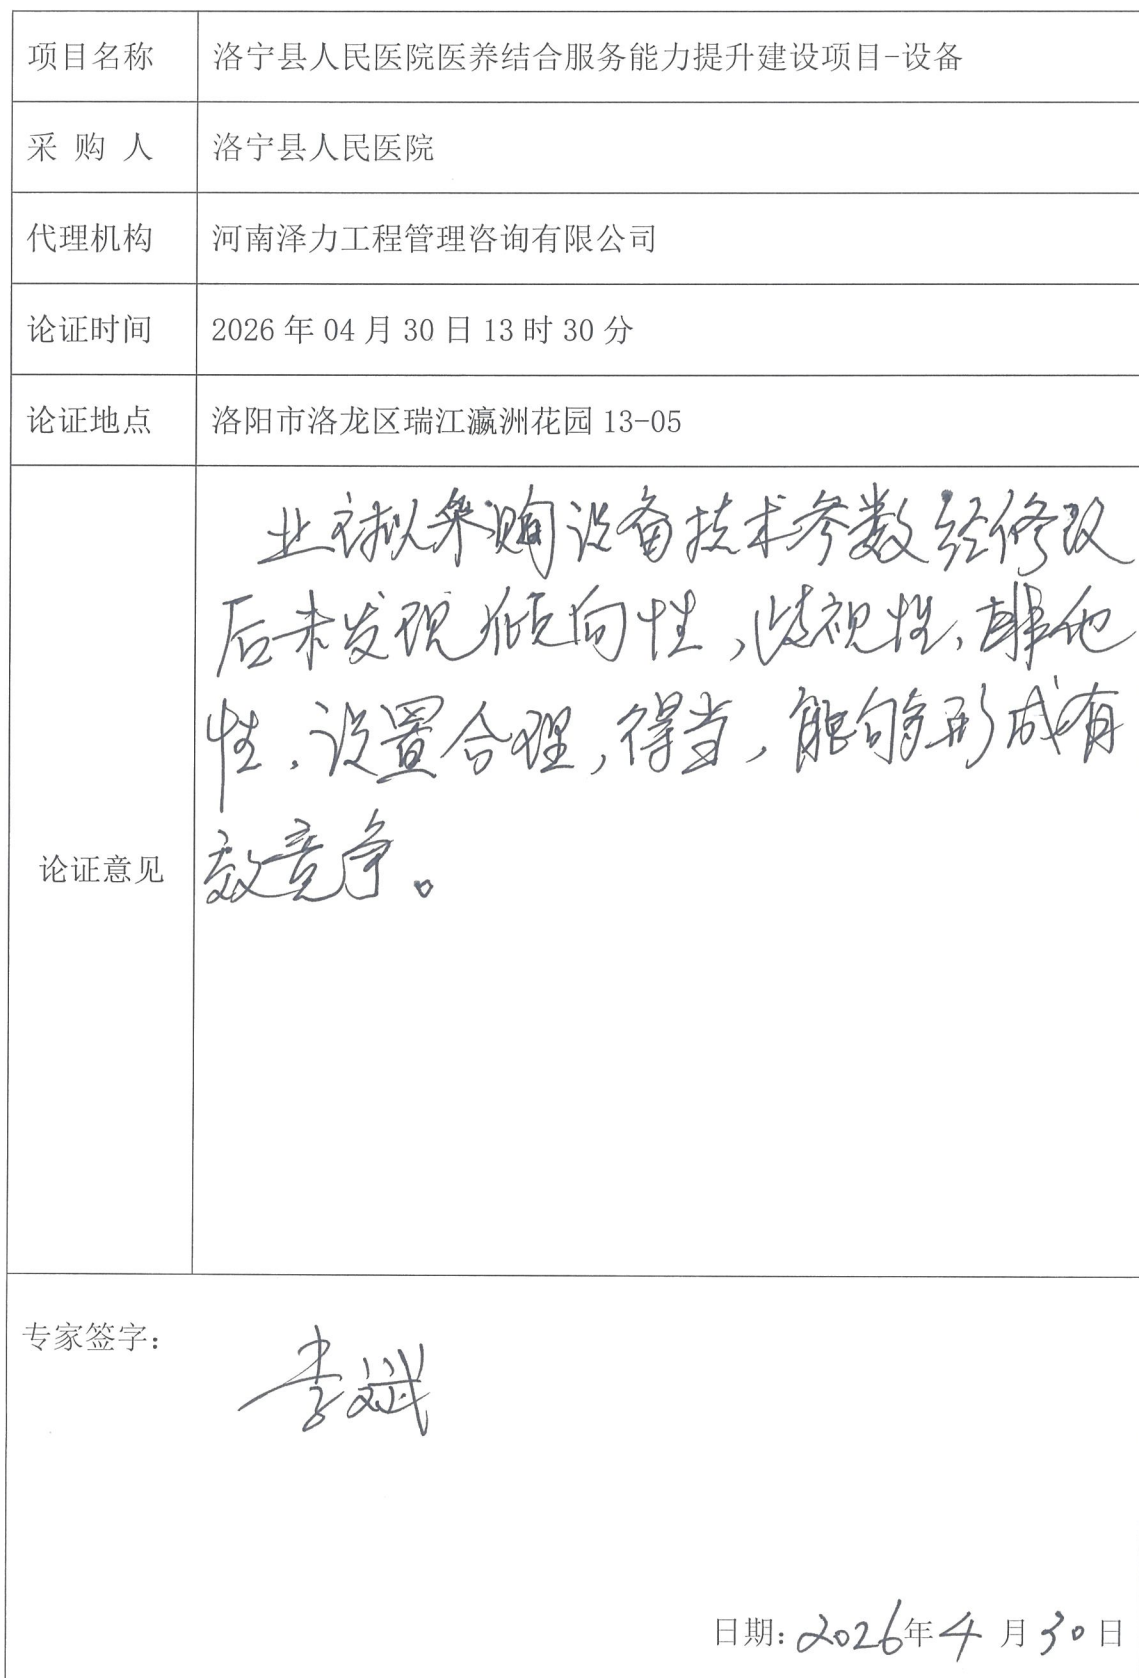 项目名称 洛宁县人民医院医养结合服务能力提升建设项目-设备
采 购 人 洛宁县人民医院
代理机构 河南泽力工程管理咨询有限公司
论证时间 2026 年 04 月 30 日 13 时 30 分
论证地点 洛阳市洛龙区瑞江瀛洲花园 13-05
论证意见
业主拟采购设备技术参数经修改
后未发现倾向性,歧视性,排他
性,设置合理,得当,能够形成有
效竞争。
专家签字:
李斌
日期: 2026年4月30日